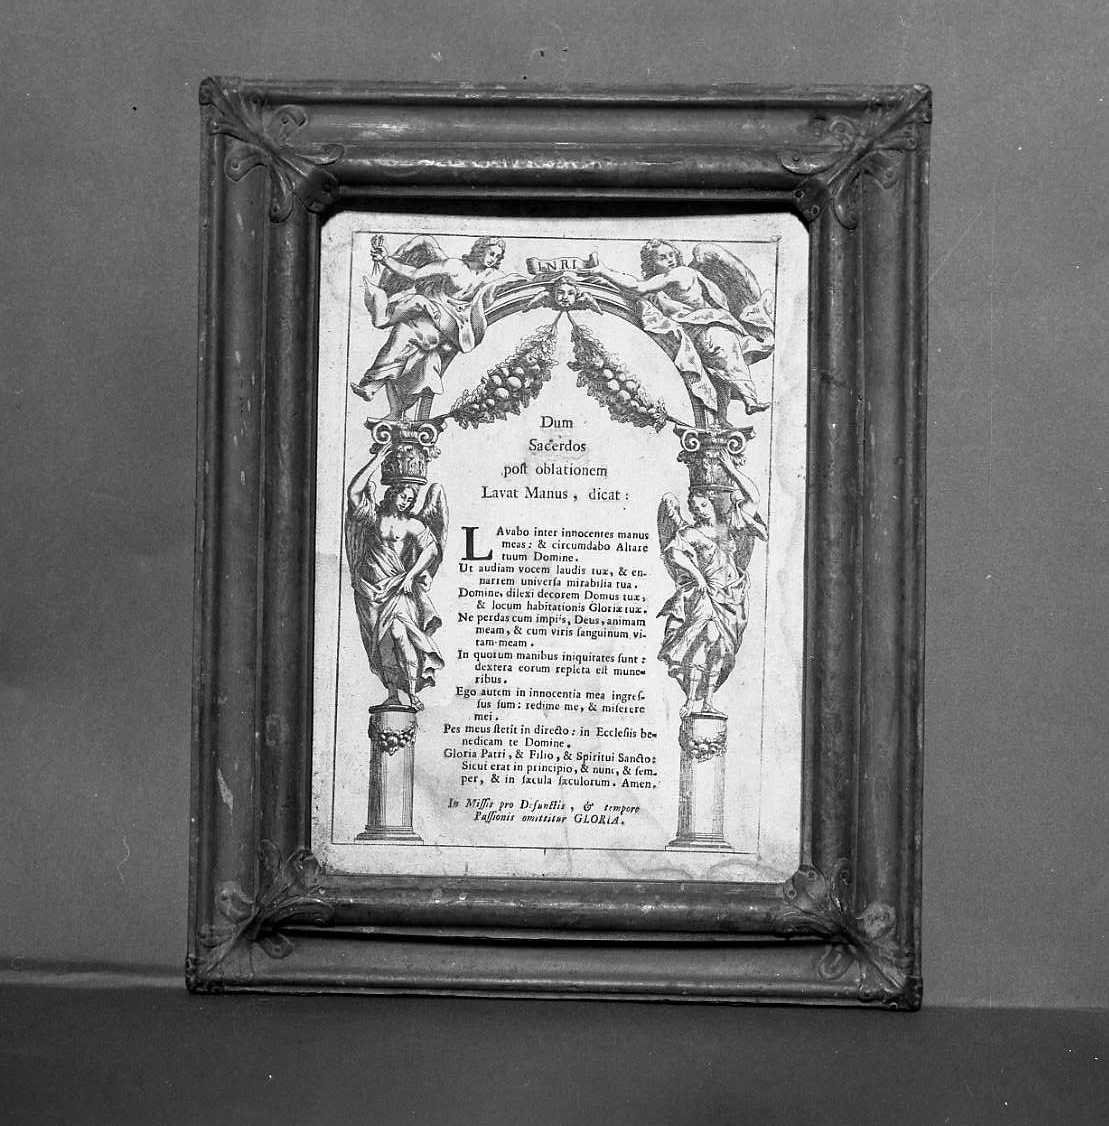 INRI
Dum
Sacerdos
poſt oblationem
Lavat Manus, dicat:
LAvabo inter innocentes manus
meas: & circumdabo Altare
tuum Domine.
Ut audiam vocem laudis tuæ, & en-
narrem univerſa mirabilia tua.
Domine, dilexi decorem Domus tuæ,
& locum habitationis Gloriæ tuæ.
Ne perdas cum impiis, Deus, animam
meam, & cum viris ſanguinum vi-
tam meam.
In quorum manibus iniquitates ſunt:
dextera eorum repleta eſt mune-
ribus.
Ego autem in innocentia mea ingreſ-
ſus ſum: redime me, & miſerere
mei.
Pes meus ſtetit in directo: in Eccleſiis be-
nedicam te Domine.
Gloria Patri, & Filio, & Spiritui Sancto:
Sicut erat in principio, & nunc, & ſem-
per, & in ſæcula ſæculorum. Amen.
In Miſſis pro Defunctis, & tempore
Paſſionis omittitur GLORIA.